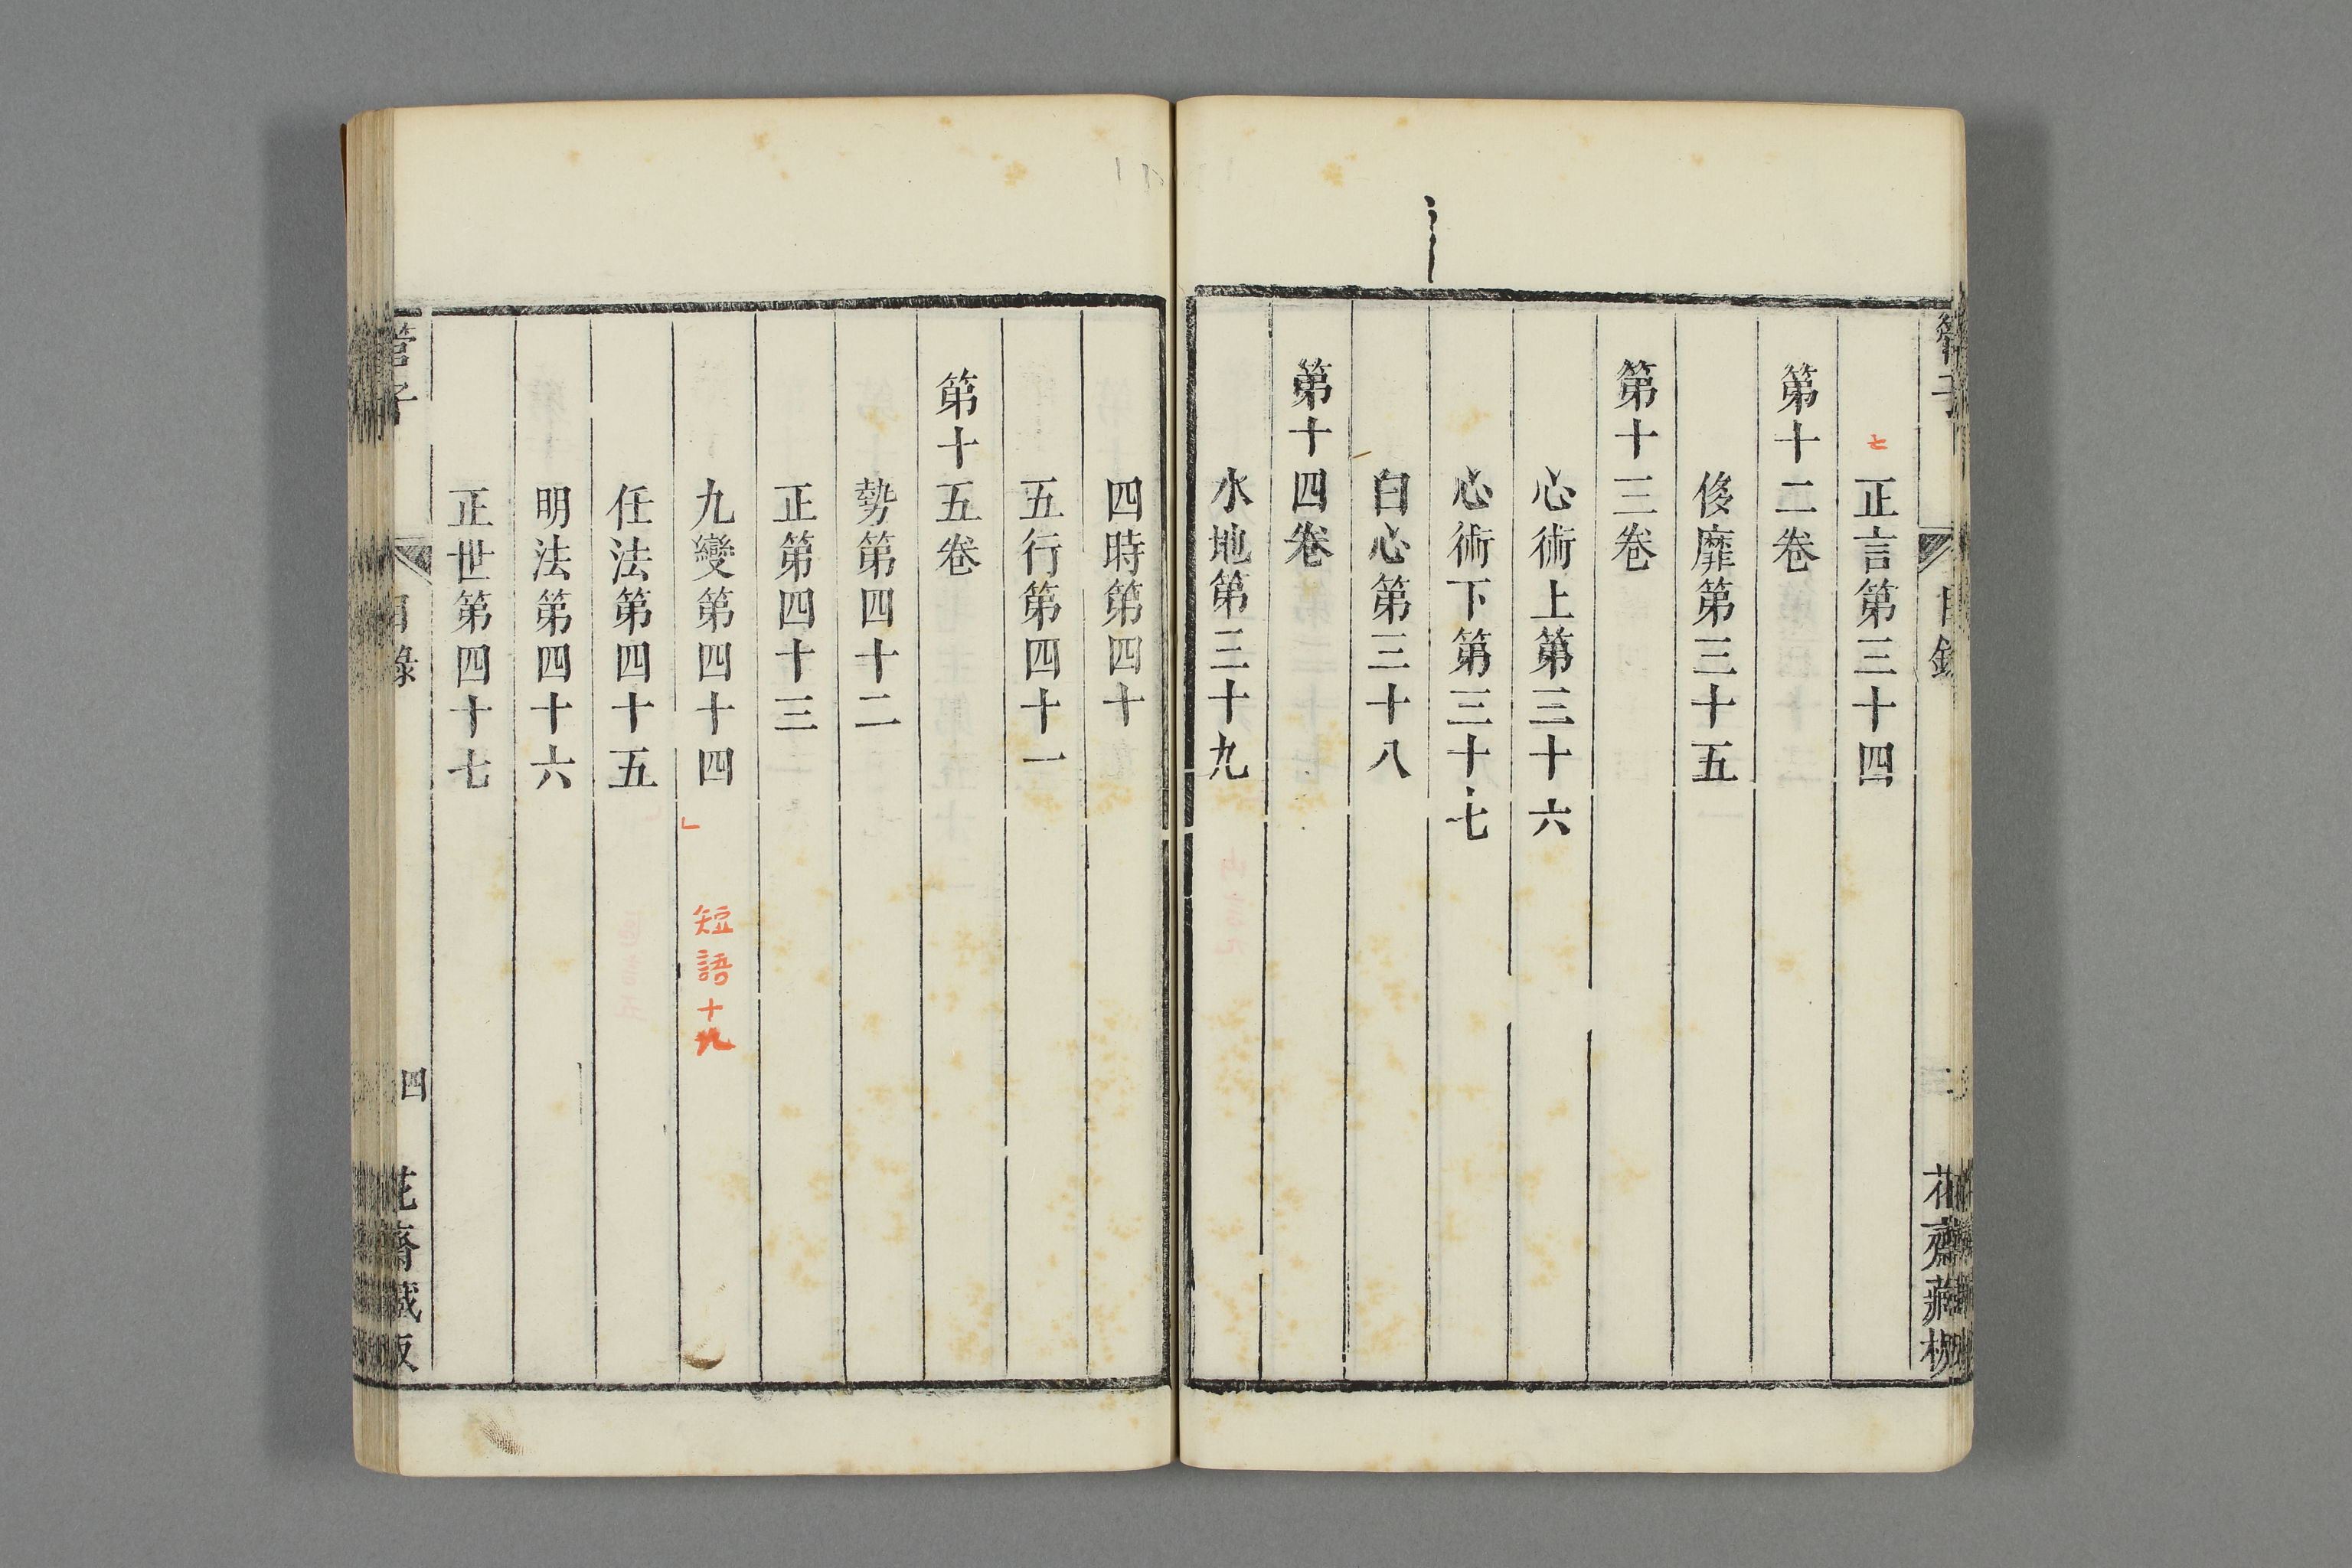 管子
目錄
花齋藏板
七
正言第三十四
第十二卷
侈靡第三十五
第十三卷
心術上第三十六
心術下第三十七
白心第三十八
第十四卷
水地第三十九
四時第四十
五行第四十一
第十五卷
勢第四十二
正第四十三
九變第四十四
短語十九
任法第四十五
明法第四十六
正世第四十七
管子
目錄
四
花齋藏板